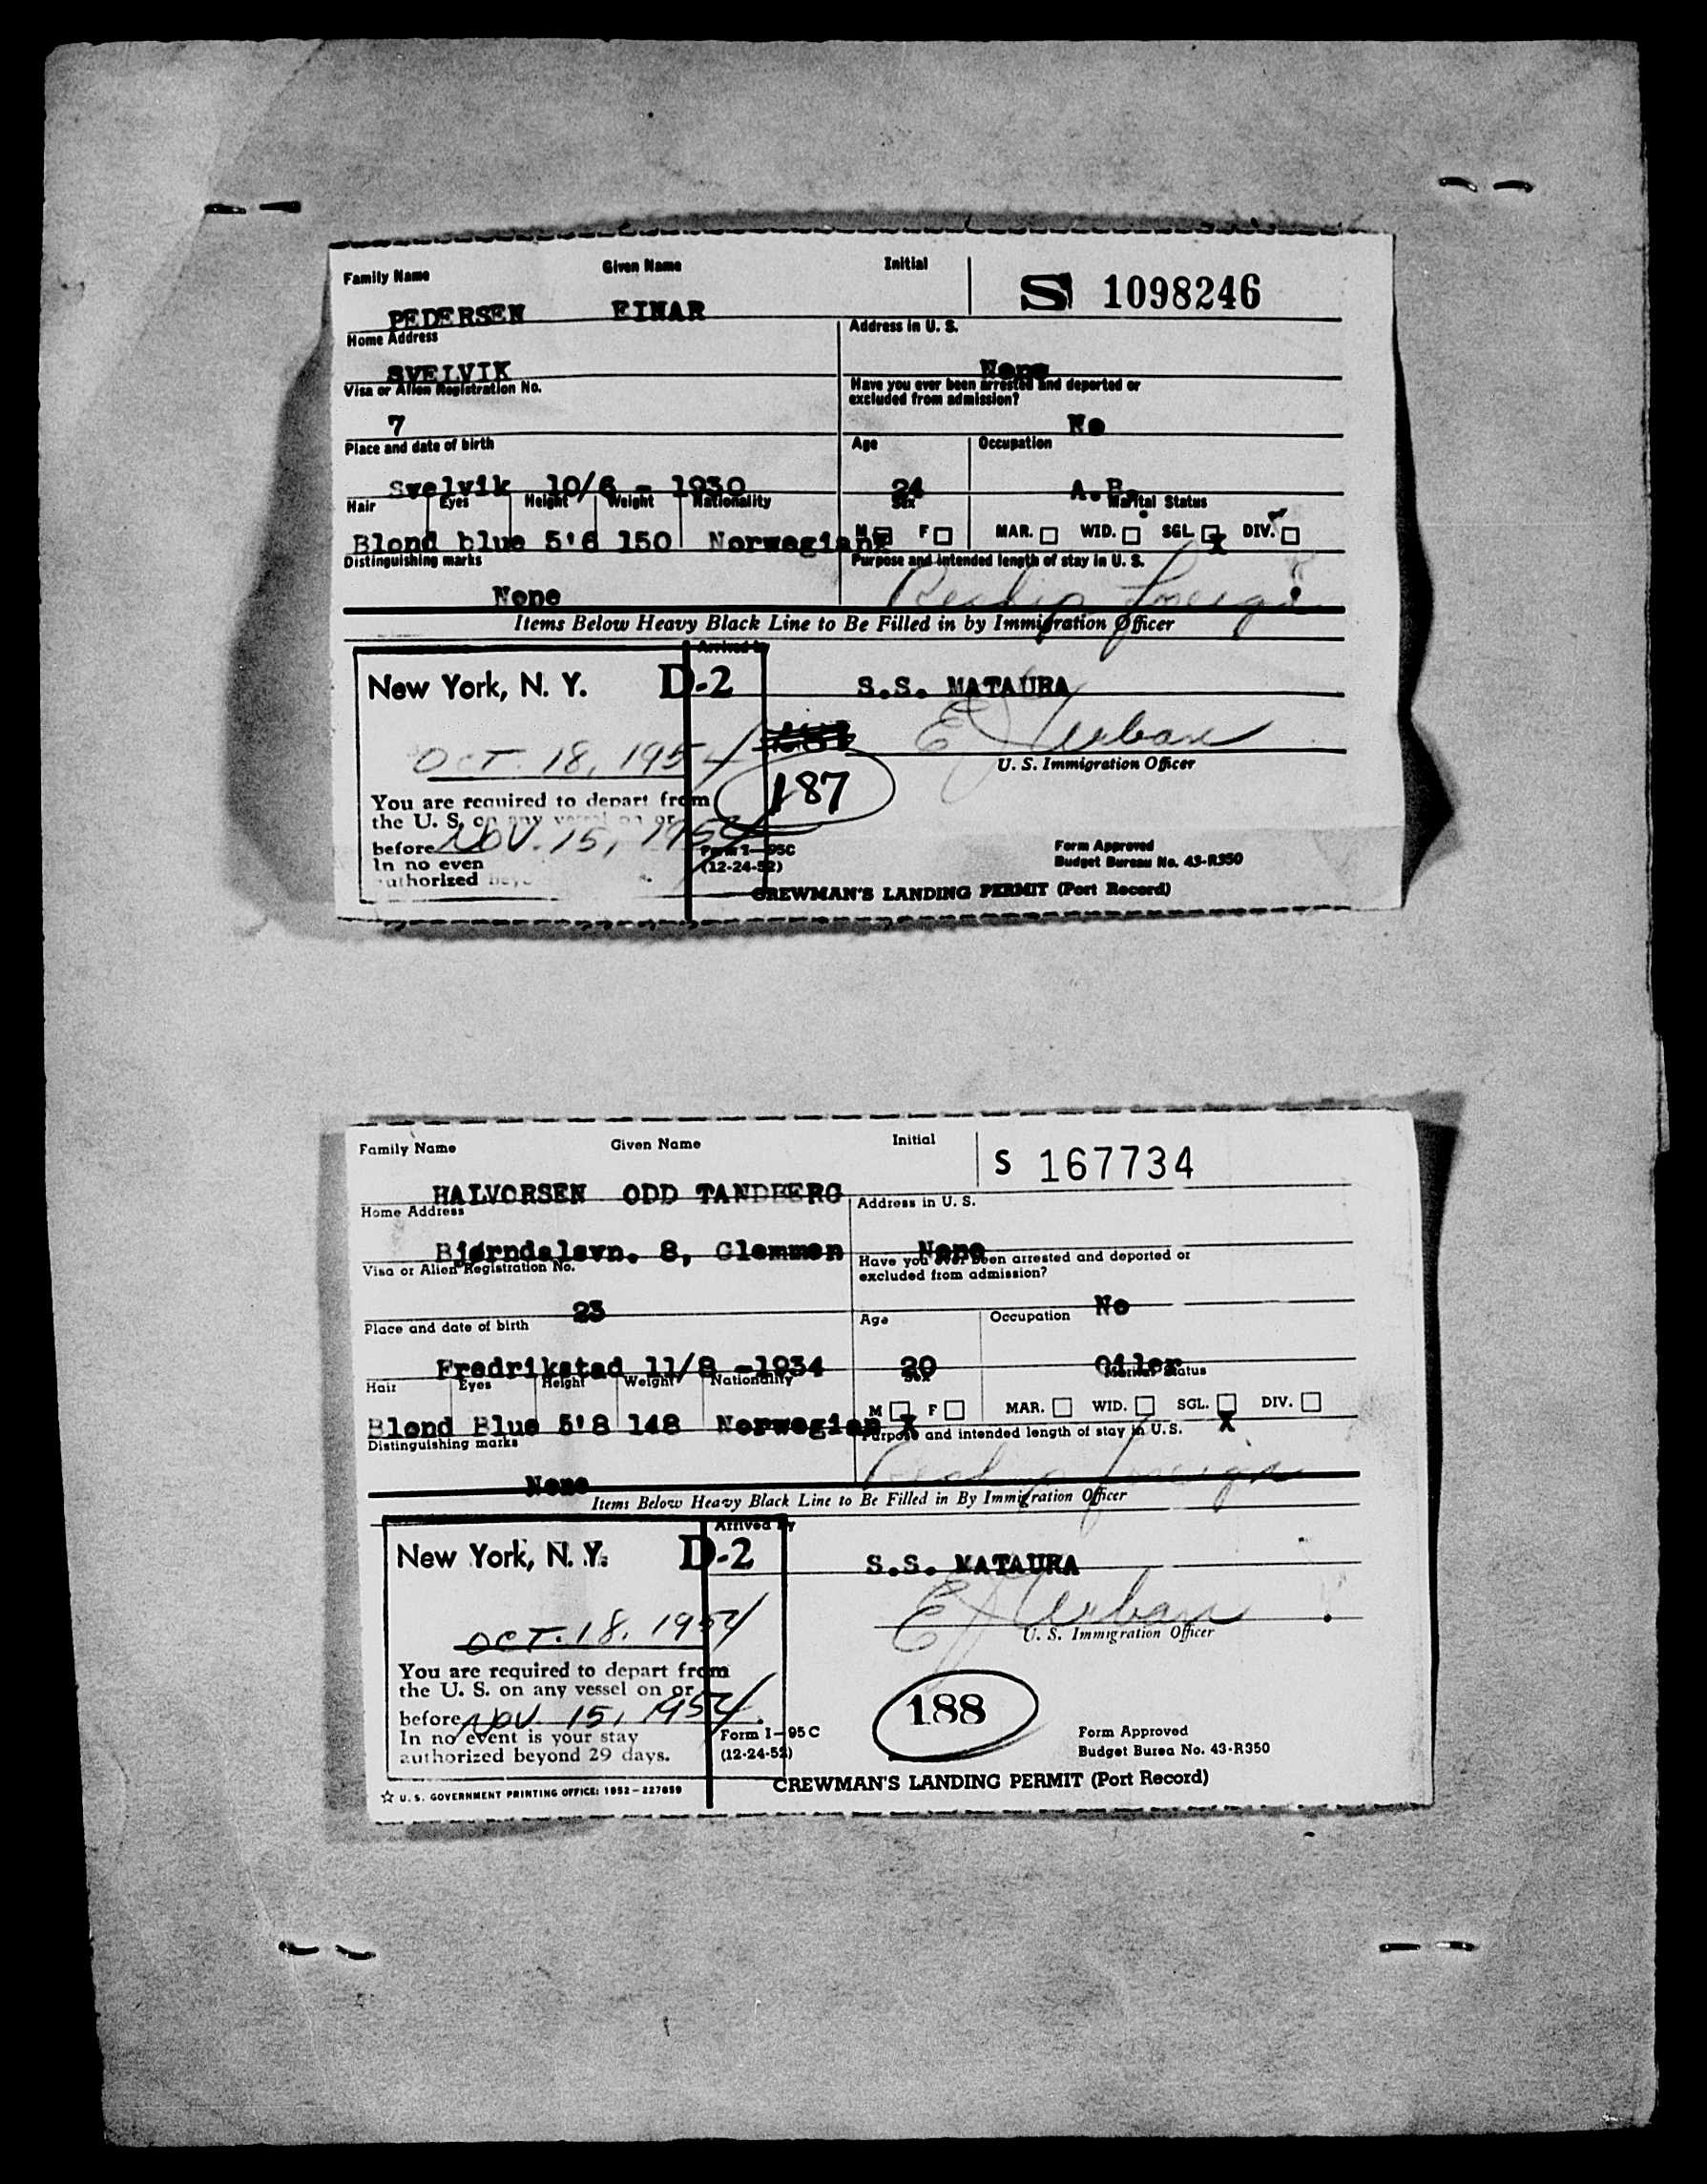 Family Name Given Name Initial
S 1098246
PEDERSEN EINAR
Home Address Address in U. S.
SVELVIK None
Visa or Alien Registration No. Have you ever been arrested and deported or
excluded from admission?
7 No
Place and date of birth Age Occupation
Svelvik 10/6 - 1930 24 A.B.
Hair Eyes Height Weight Nationality Sex Marital Status
M F MAR. WID. SGL. DIV.
Blond blue 5'6 150 Norwegian X X
Distinguishing marks Purpose and intended length of stay in U. S.
None Reship Foreign
Items Below Heavy Black Line to Be Filled in by Immigration Officer
Arrived by
New York, N. Y. D-2 S.S. MATAURA
E J Urban
OCT. 18, 1954
U. S. Immigration Officer
187
You are required to depart from
the U. S. on any vessel on or
before NOV. 15, 1954
In no even
authorized
Form I-95C
(12-24-52)
Form Approved
Budget Bureau No. 43-R350
CREWMAN'S LANDING PERMIT (Port Record)
Family Name Given Name Initial
S 167734
HALVORSEN ODD TANDBERG
Home Address Address in U. S.
Bjørndalsvn. 8, Glemmen None
Visa or Alien Registration No. Have you ever been arrested and deported or
excluded from admission?
23 No
Place and date of birth Age Occupation
Fredrikstad 11/8 -1934 20 Oiler
Hair Eyes Height Weight Nationality Sex Marital Status
M F MAR. WID. SGL. DIV.
Blond Blue 5'8 148 Norwegian X X
Distinguishing marks Purpose and intended length of stay in U.S.
None Reship Foreign
Items Below Heavy Black Line to Be Filled in By Immigration Officer
Arrived by
New York, N. Y. D-2 S.S. MATAURA
E J Urban
OCT. 18, 1954
U. S. Immigration Officer
You are required to depart from
the U. S. on any vessel on or
before NOV. 15, 1954
In no event is your stay
authorized beyond 29 days.
188
Form I-95 C
(12-24-52)
Form Approved
Budget Burea No. 43-R350
CREWMAN'S LANDING PERMIT (Port Record)
☆ U. S. GOVERNMENT PRINTING OFFICE: 1952-227859